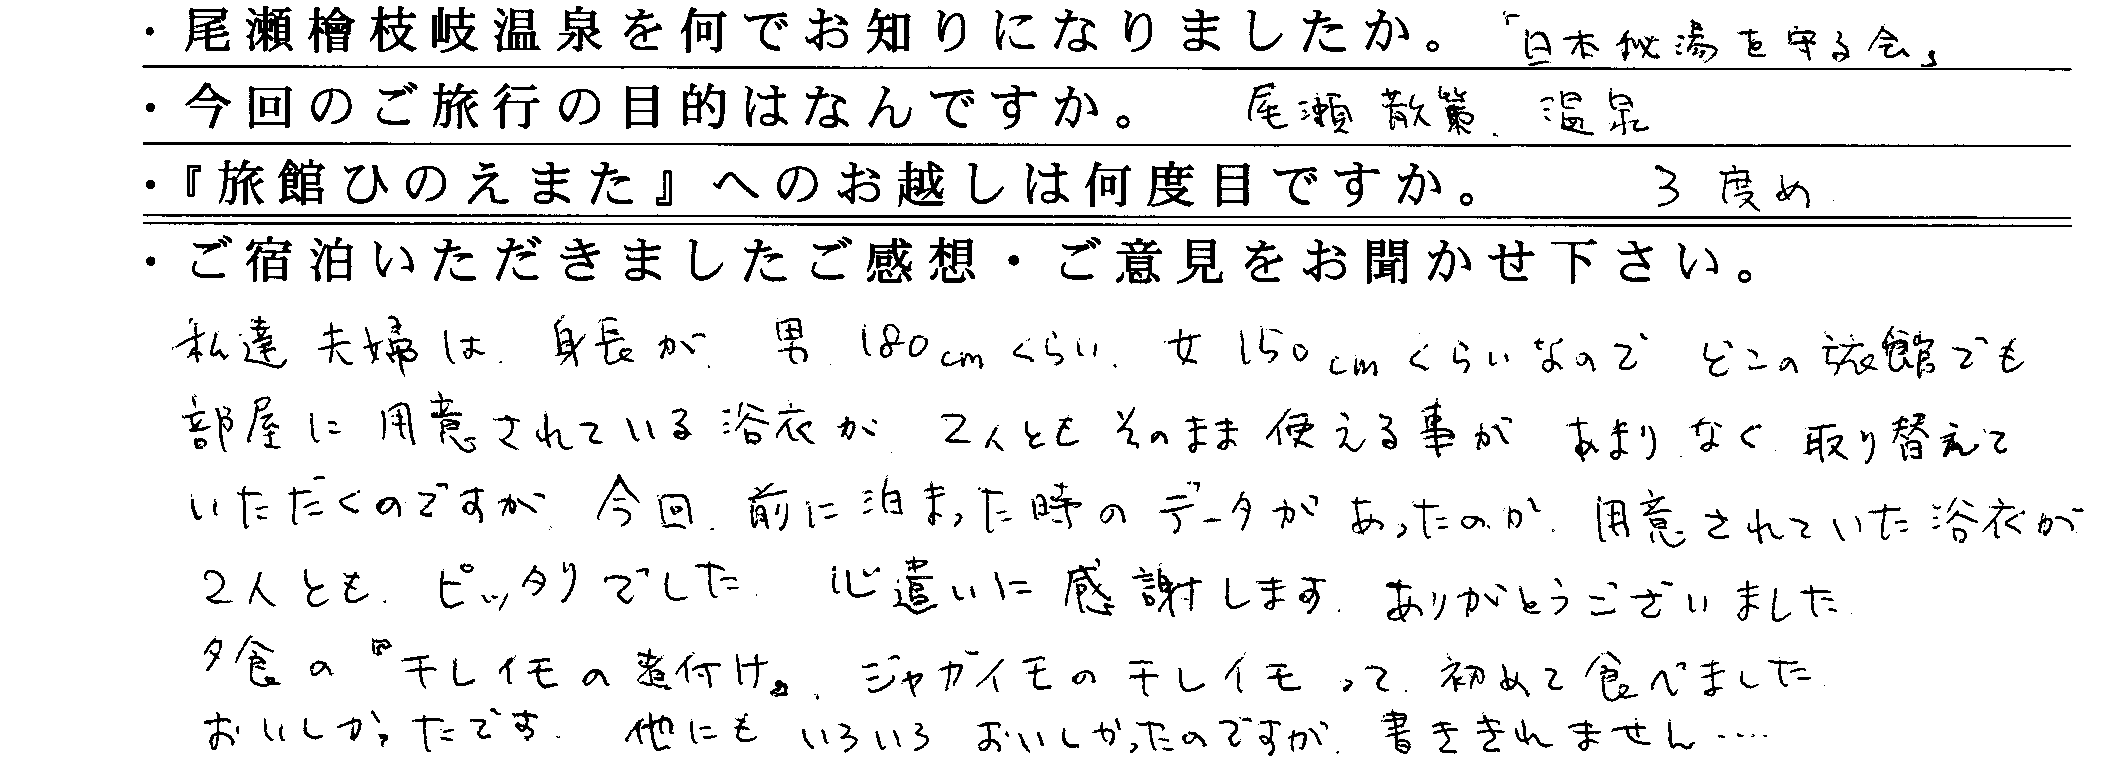 ・尾瀬檜枝岐温泉を何でお知りになりましたか。「日本秘湯を守る会」
・今回のご旅行の目的はなんですか。 尾瀬散策、温泉
・『旅館ひのえまた』へのお越しは何度目ですか。 3度め
・ご宿泊いただきましたご感想・ご意見をお聞かせ下さい。
私達夫婦は、身長が、男 180cmくらい、女 150cmくらいなので どこの旅館でも
部屋に用意されている浴衣が 2人とも そのまま使える事が あまりなく 取り替えて
いただくのですが、今回、前に泊まった時のデータがあったのか、用意されていた浴衣が
2人とも、ピッタリでした、心遣いに感謝します、ありがとうございました
夕食の『干しイモの煮付け』、ジャガイモの干しイモって、初めて食べました、
おいしかったです、他にもいろいろ おいしかったのですが、書ききれません…‥